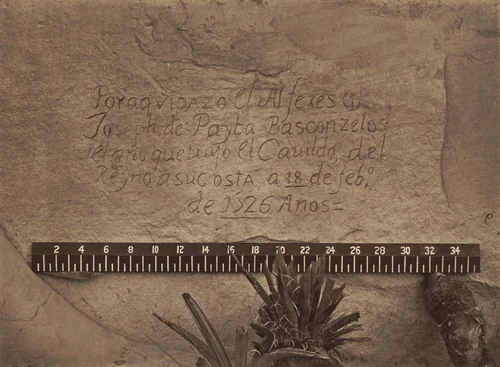 Por aqui pazo el Alferes Dn
Joseph de Payba Basconzelos
el año que trujo el Cavildo del
Reyno a su costa a 18 de febo
de 1726 Años =
2 4 6 8 10 12 14 16 18 20 22 24 26 28 30 32 34
e